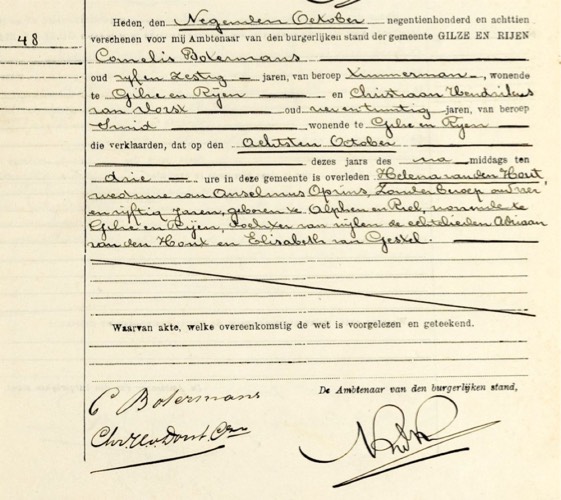 Heden, den Negenden October negentienhonderd en achttien
48
verschenen voor mij Ambtenaar van den burgerlijken stand der gemeente GILZE EN RIJEN
Cornelis Botermans
oud vijf en zestig jaren, van beroep timmerman, wonende
te Gilze en Rijen en Christiaan Hendrikus
van Dorst oud jaren, van beroep
Smid wonende te Gilze en Rijen
die verklaarden, dat op den Achtsten October
dezes jaars des na middags ten
drie ure in deze gemeente is overleden Helena van den Hout,
weduwe van Anselmus Oprins, Zonder beroep oud vier
en vijftig jaren, geboren te Alphen en Riel, wonende te
Gilze en Rijen, dochter van wijlen de echtelieden Adriaan
van den Hout en Elisabeth van Gestel.
Waarvan akte, welke overeenkomstig de wet is voorgelezen en geteekend.
De Ambtenaar van den burgerlijken stand,
C Botermans
Chr. H. v. Dorst